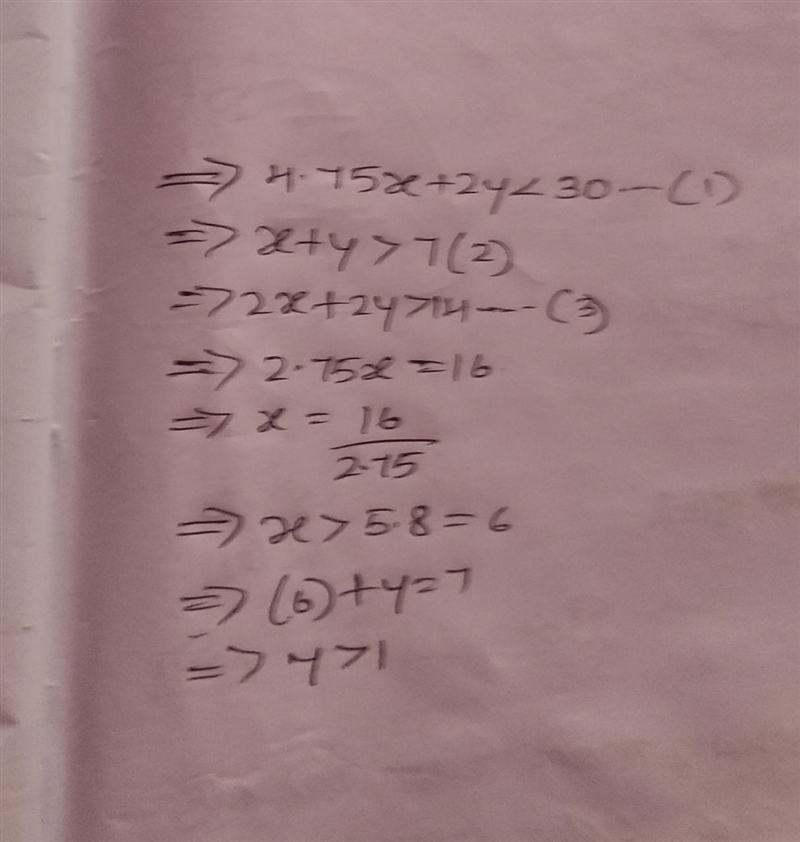 ⇒ 4.75x+2y<30-(1)
⇒ x+y>7(2)
⇒2x+2y>14--(3)
⇒ 2.75x=16
⇒ x = 16/2.75
⇒ x>5.8=6
⇒ (6)+y=7
⇒ y>1